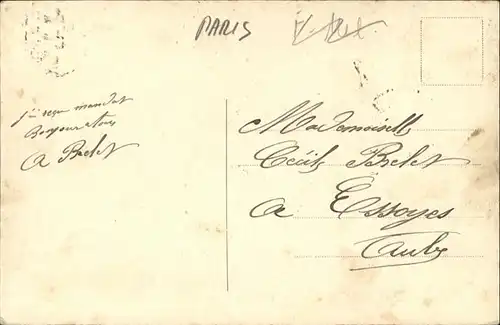 PARIS
J'ai reçu mandat
Bonjour a tous
A Brelet
Mademoiselle
Cécile Brelet
a Essoyes
Aube